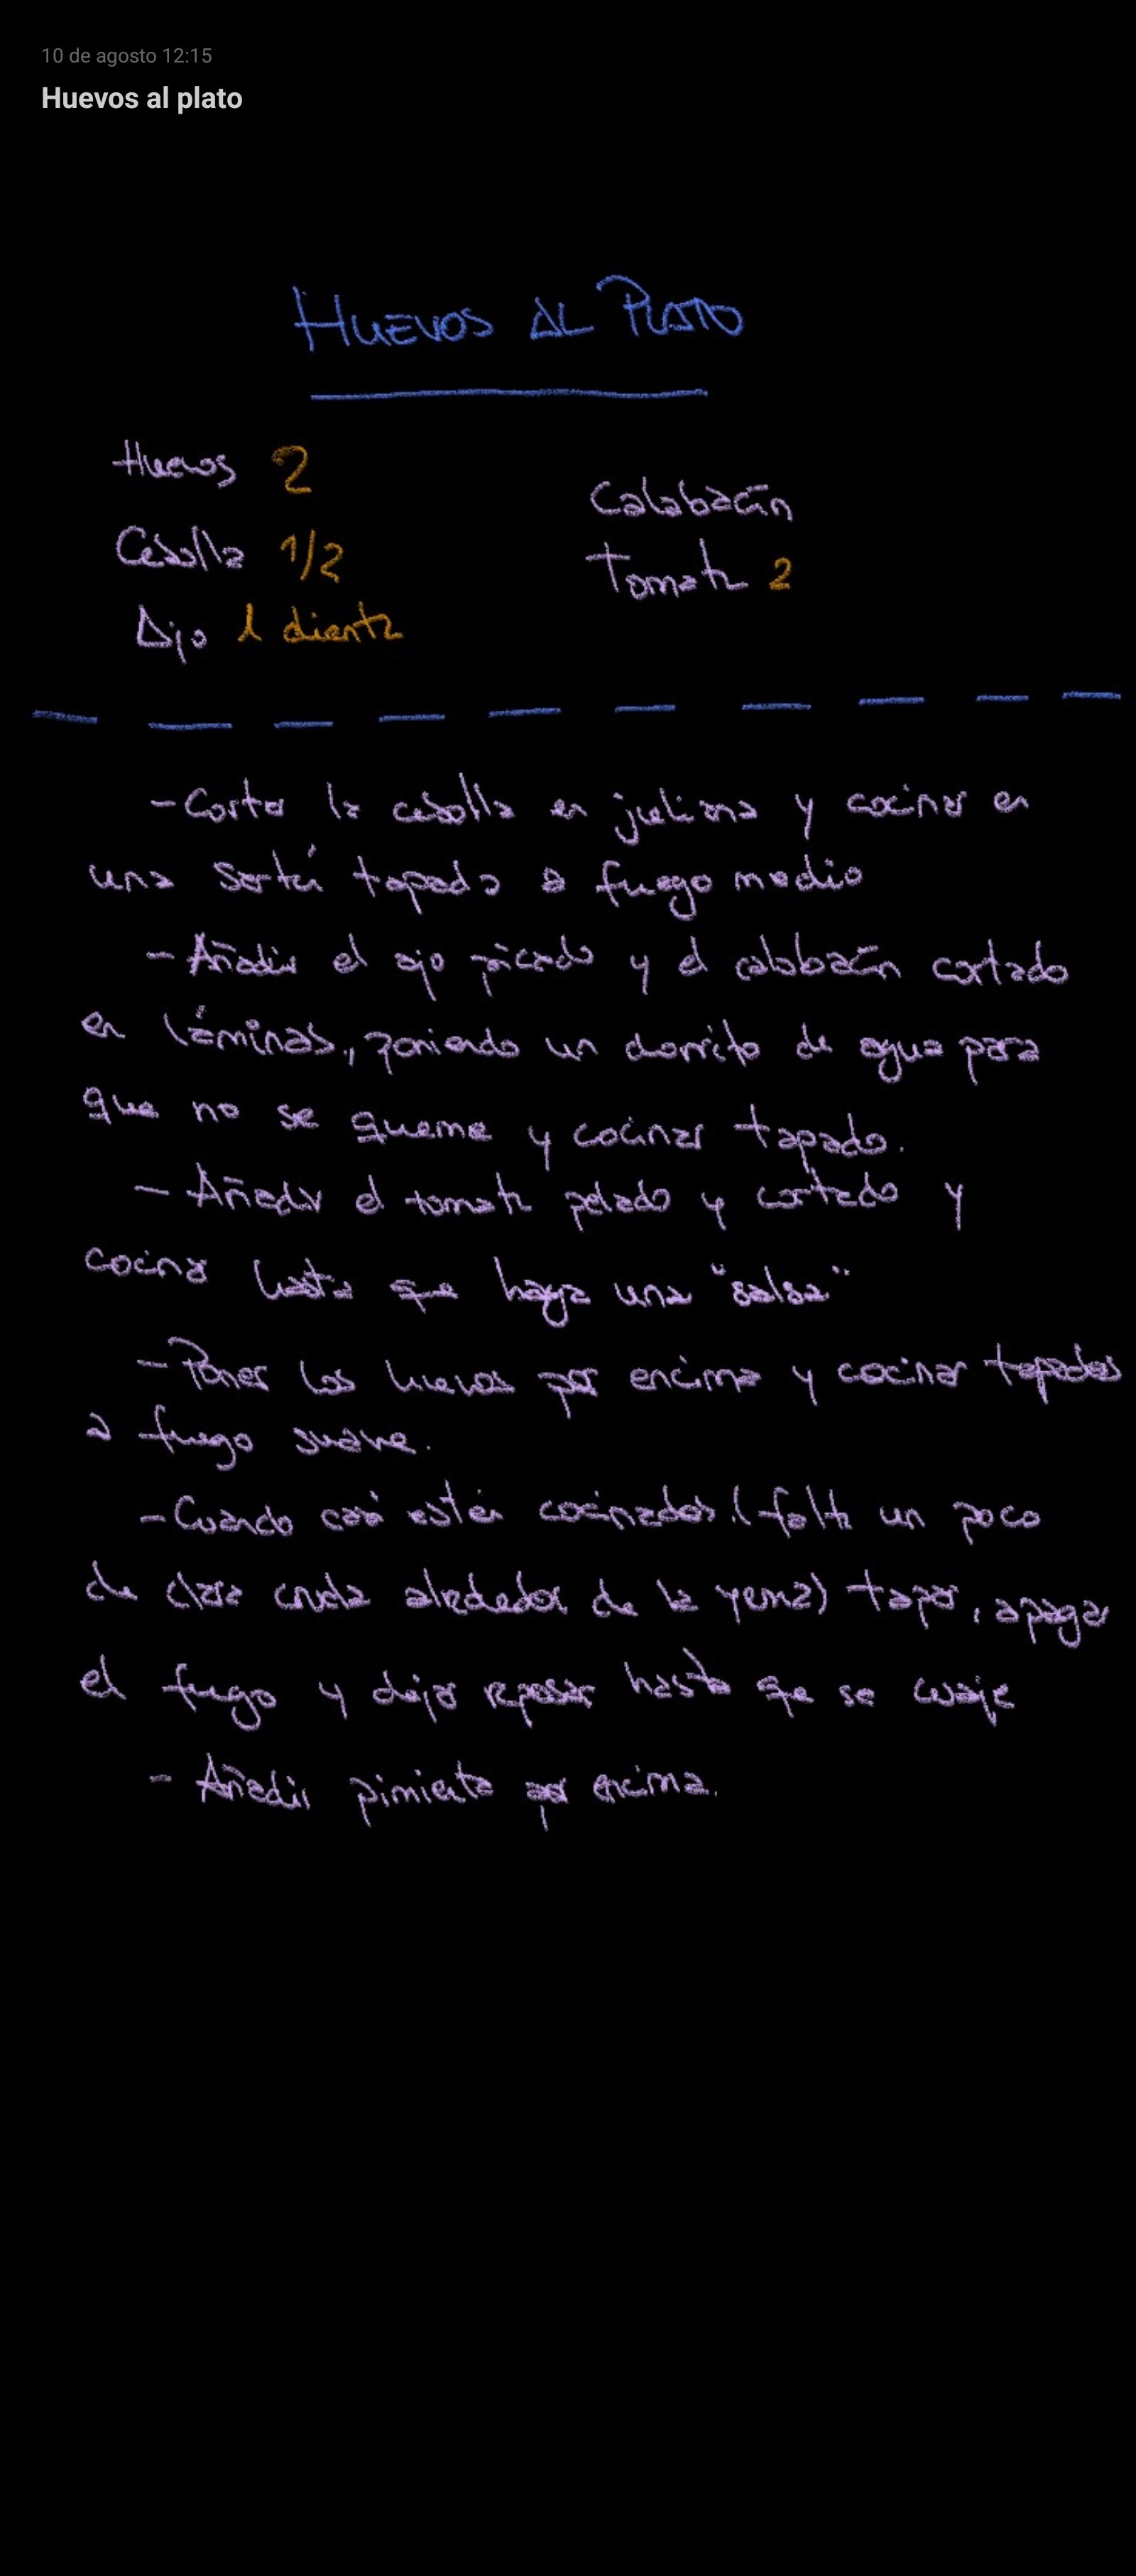 10 de agosto 12:15
Huevos al plato
HUEVOS AL PLATO
Huevos 2
Calabacín
Cebolla 1/2
Tomate 2
Ajo 1 diente
- Cortar la cebolla en juliana y cocinar en
una sartén tapada a fuego medio
- Añadir el ajo picado y el calabacín cortado
en láminas, poniendo un chorrito de agua para
que no se queme y cocinar tapado.
- Añadir el tomate pelado y cortado y
cocinar hasta que haya una "salsa"
- Poner los huevos por encima y cocinar tapados
a fuego suave.
- Cuando casi estén cocinados (falte un poco
de clara cruda alrededor de la yema) tapar, apagar
el fuego y dejar reposar hasta que se cuaje
- Añadir pimienta por encima.